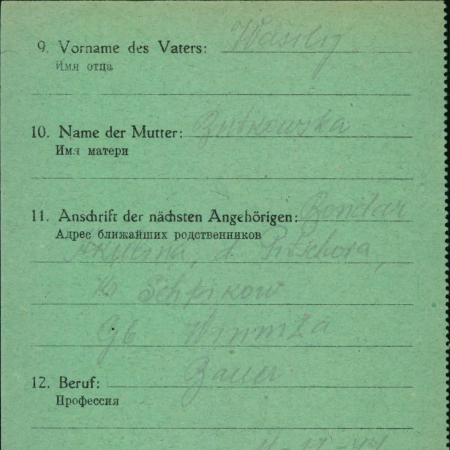 9. Vorname des Vaters: Wasily
Имя отца
10. Name der Mutter: Butkowska
Имя матери
11. Anschrift der nächsten Angehörigen: Bondar
Адрес ближайших родственников
Akulina, d. Pitschora,
Kr Schpikow
Gb Winniza
12. Beruf: Bauer
Профессия